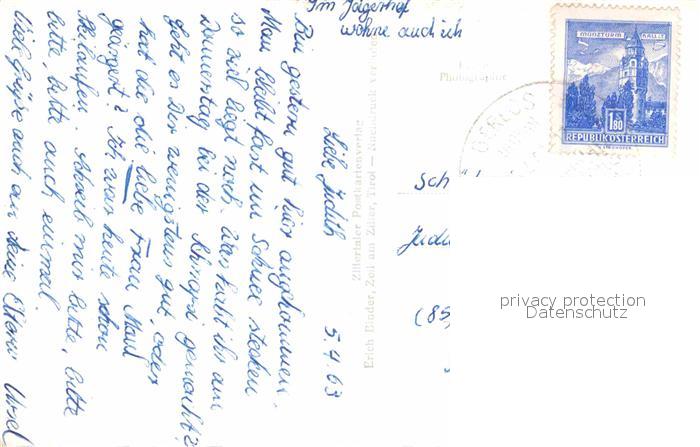 Im Jägerhof
wohne auch ich
5.4.63
Liebe Judith
Bin gestern gut hier angekommen.
Man bleibt fast im Schnee stecken
so viel liegt noch. Was habt ihr am
Donnerstag bei der Ahlgrimm gemacht?
Geht es Dir wenigstens gut, oder
hat die die liebe Frau Mand
geärgert? Ich war heute schon
Skilaufen. Schreib mir bitte, bitte
bitte, bitte auch einmal.
Viele Grüße auch an deine Eltern Ursel
Zillertaler Postkartenverlag
Erich Binder, Zell am Ziller, Tirol — Nachdruck verboten
Photographie
GERLOS
MÜNZTURM HALL i. T.
1.80
REPUBLIK ÖSTERREICH
Sch
Judi
(85
privacy protection
Datenschutz